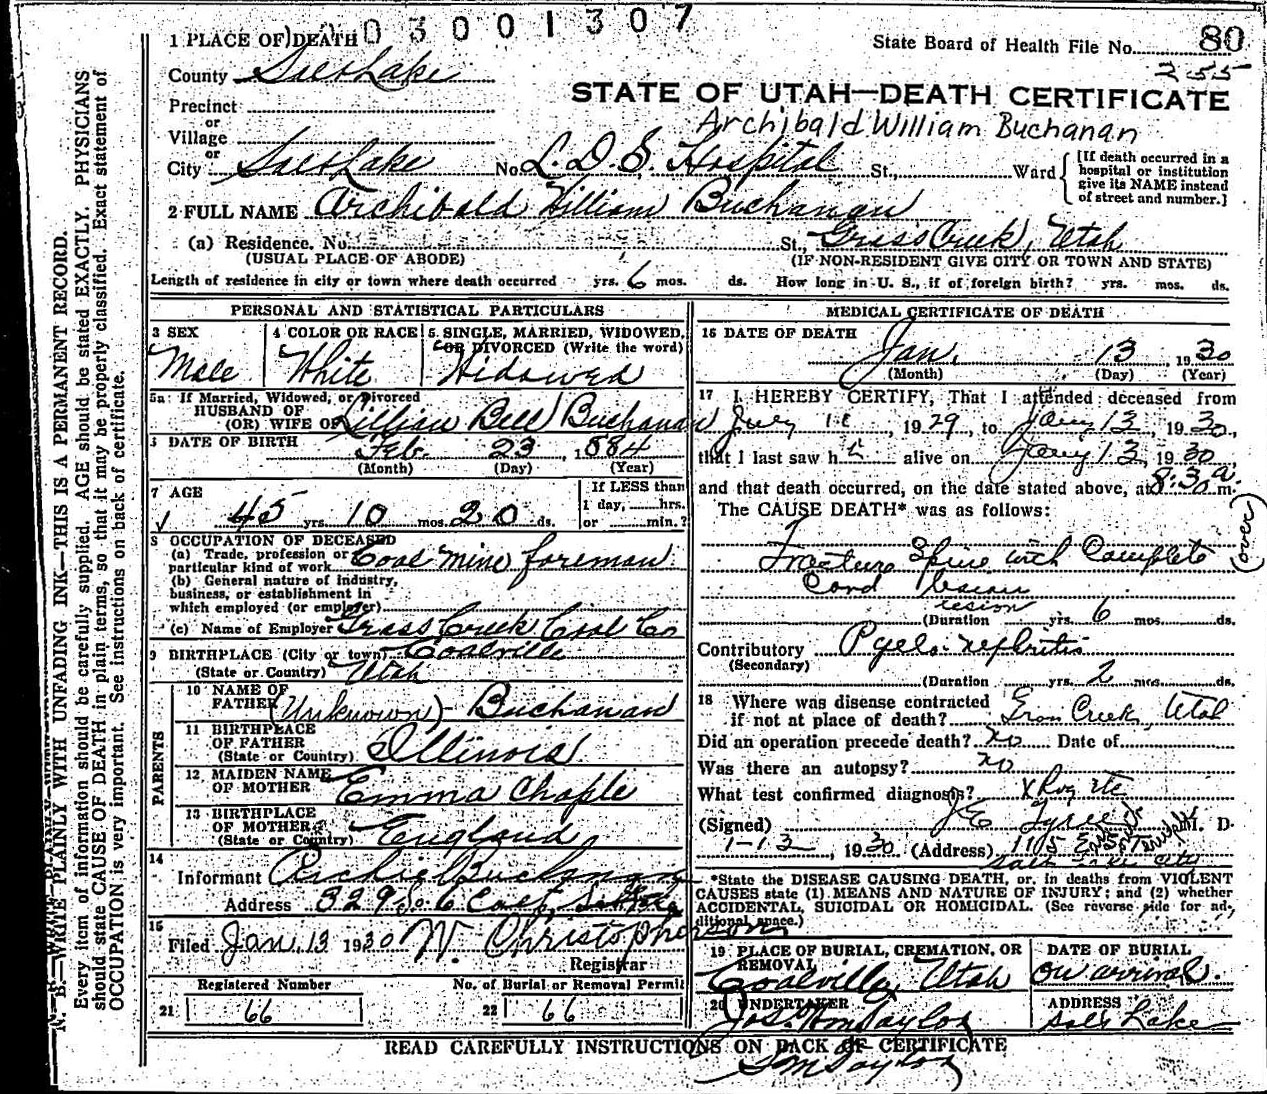 03001307
1 PLACE OF DEATH
State Board of Health File No. 80
255
County Salt Lake
STATE OF UTAH—DEATH CERTIFICATE
Precinct
or
Archibald William Buchanan
Village
or
City Salt Lake No. L. D. S. Hospital St., Ward
[If death occurred in a hospital or institution give its NAME instead of street and number.]
2 FULL NAME Archibald William Buchanan
(a) Residence. No. St., Grass Creek, Utah
(USUAL PLACE OF ABODE) (IF NON-RESIDENT GIVE CITY OR TOWN AND STATE)
Length of residence in city or town where death occurred yrs. 6 mos. ds. How long in U. S., if of foreign birth? yrs. mos. ds.
PERSONAL AND STATISTICAL PARTICULARS
3 SEX
Male
4 COLOR OR RACE
White
5. SINGLE, MARRIED, WIDOWED,
OR DIVORCED (Write the word)
Widowed
5a If Married, Widowed, or Divorced
HUSBAND OF
(OR) WIFE OF Lillian Bell Buchanan
6 DATE OF BIRTH Feb. 23, 1884
(Month) (Day) (Year)
7 AGE
45 yrs. 10 mos. 20 ds.
If LESS than
1 day, hrs.
or min.?
8 OCCUPATION OF DECEASED
(a) Trade, profession or
particular kind of work Coal mine foreman
(b) General nature of industry,
business, or establishment in
which employed (or employer)
(c) Name of Employer Grass Creek Coal Co
9 BIRTHPLACE (City or town) Coalville
(State or Country) Utah
PARENTS
10 NAME OF
FATHER (Unknown) - Buchanan
11 BIRTHPLACE
OF FATHER
(State or Country) Illinois
12 MAIDEN NAME
OF MOTHER Emma Chaple
13 BIRTHPLACE
OF MOTHER
(State or Country) England
14
Informant Archie Buchanan
Address 329 So. 6 East, Salt Lake
15
Filed Jan. 13 1930 W. Christopherson
Registrar
Registered Number
21 66
No. of Burial or Removal Permit
22 66
MEDICAL CERTIFICATE OF DEATH
16 DATE OF DEATH
Jan. 13 1930
(Month) (Day) (Year)
17 I HEREBY CERTIFY, That I attended deceased from
July 18, 1929, to Jany 13, 1930,
that I last saw h alive on Jany 13, 1930,
and that death occurred, on the date stated above, at 8:30 a. m.
The CAUSE DEATH* was as follows:
Fracture Spine with Complete
(over)
Cord lesion
lesion
(Duration yrs. 6 mos. ds.
Contributory Pyelo-nephritis
(Secondary)
(Duration yrs. 2 mos. ds.
18 Where was disease contracted
if not at place of death? Creek, Utah
Did an operation precede death? no Date of
Was there an autopsy? no
What test confirmed diagnosis? X Ray etc
(Signed) J E Tyree M. D.
1-13, 1930 (Address)
Salt Lake City
*State the DISEASE CAUSING DEATH, or, in deaths from VIOLENT
CAUSES state (1) MEANS AND NATURE OF INJURY; and (2) whether
ACCIDENTAL, SUICIDAL OR HOMICIDAL. (See reverse side for ad-
ditional space.)
19 PLACE OF BURIAL, CREMATION, OR
REMOVAL
Coalville, Utah
DATE OF BURIAL
On arrival.
20 UNDERTAKER
Jos. Wm Taylor
ADDRESS
Salt Lake
READ CAREFULLY INSTRUCTIONS ON BACK OF CERTIFICATE
N. B.—WRITE PLAINLY WITH UNFADING INK—THIS IS A PERMANENT RECORD.
Every item of information should be carefully supplied. AGE should be stated EXACTLY. PHYSICIANS
should state CAUSE OF DEATH in plain terms, so that it may be properly classified. Exact statement of
OCCUPATION is very important. See instructions on back of certificate.